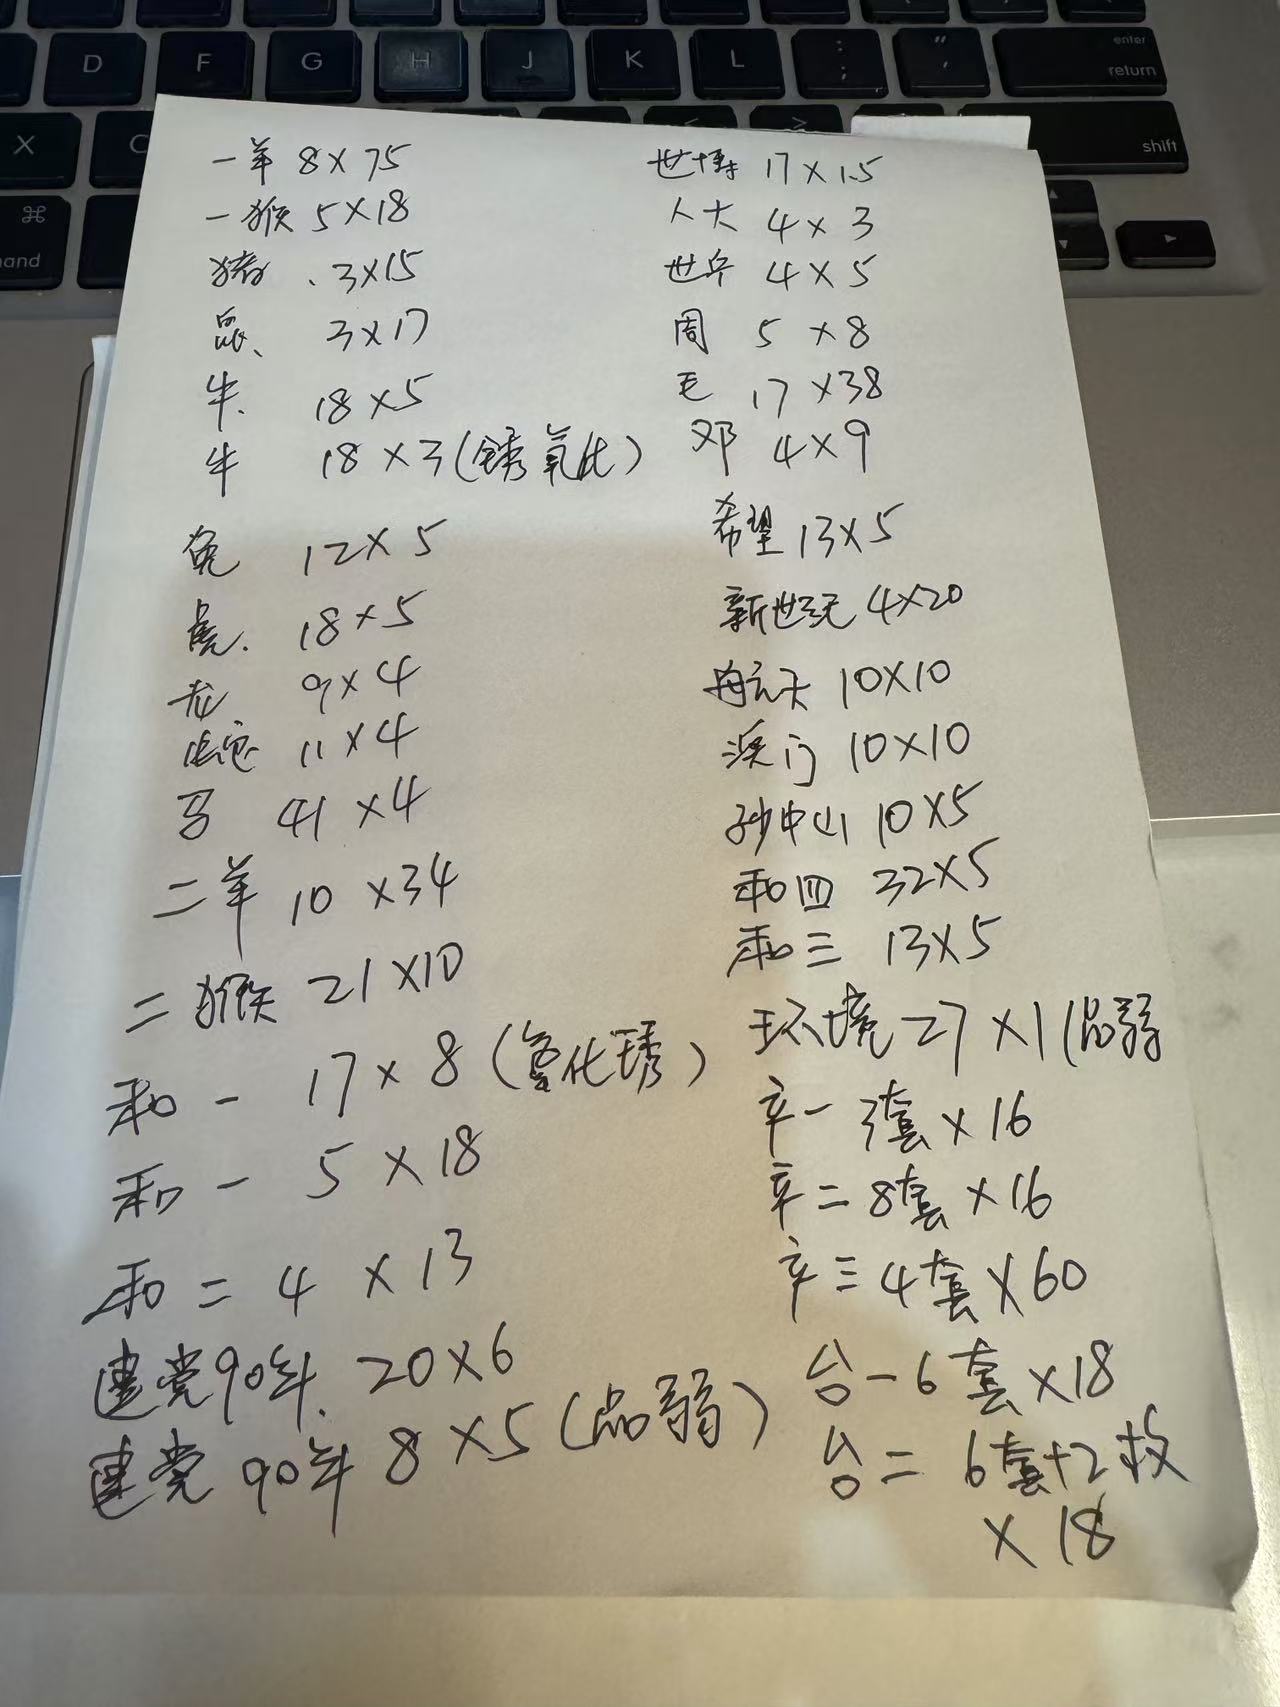 一羊 8×75
一猴 5×18
猪、3×15
鼠、 3×17
牛、 18×5
牛 18×3(锈氧化)
兔 12×5
虎、 18×5
龙 9×4
蛇 11×4
马 41×4
二羊 10×34
二猴 21×10
和一 17×8(氧化锈)
和一 5×18
和二 4×13
建党90年、20×6
建党90年 8×5(品弱)
世博 17×1.5
人大 4×3
世乒 4×5
周 5×8
毛 17×38
邓 4×9
希望 13×5
新世纪 4×20
航天 10×10
澳门 10×10
孙中山 10×5
和四 32×5
和三 13×5
环境 27×1(品弱
辛一 3套×16
辛二 8套×16
辛三 4套×60
台一 6套×18
台二 6套+2枚
×18
D F G H J K L : ; " ' enter return
X C < > shift
⌘